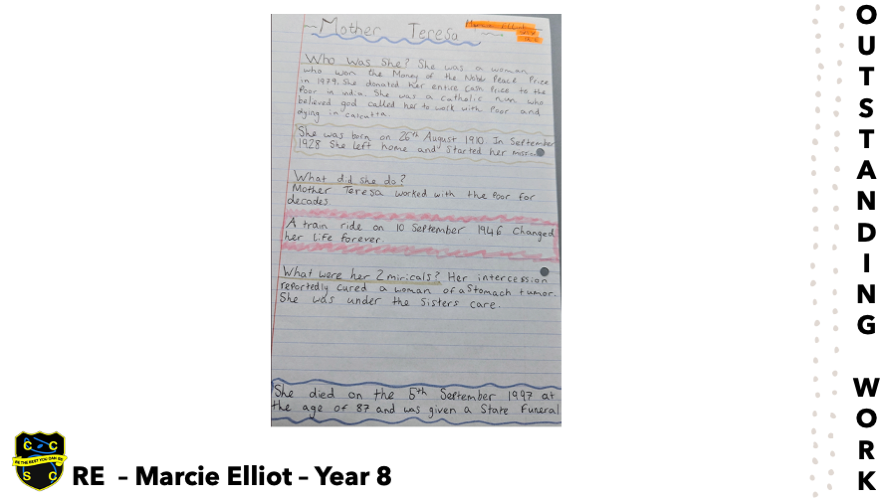 Mother Teresa
Marcie Elliot
Who was She? She was a woman
who won the Money of the Nobel Peace Prize
in 1979. She donated her entire Cash Price to the
Poor in india. She was a catholic nun who
believed god called her to work with Poor and
dying in calcutta.
She was born on 26th August 1910. In September
1928 She left home and started her
What did she do?
Mother Teresa worked with the Poor for
decades
A train ride on 10 September 1946 Changed
her life forever.
What were her 2 miricals? Her intercession
reportedly cured a woman of a Stomach tumor.
She was under the Sisters care.
She died on the 5th September 1997 at
the age of 87 and was given a State Funeral
C C
BE THE BEST YOU CAN BE
S C
RE – Marcie Elliot – Year 8
OUTSTANDING WORK